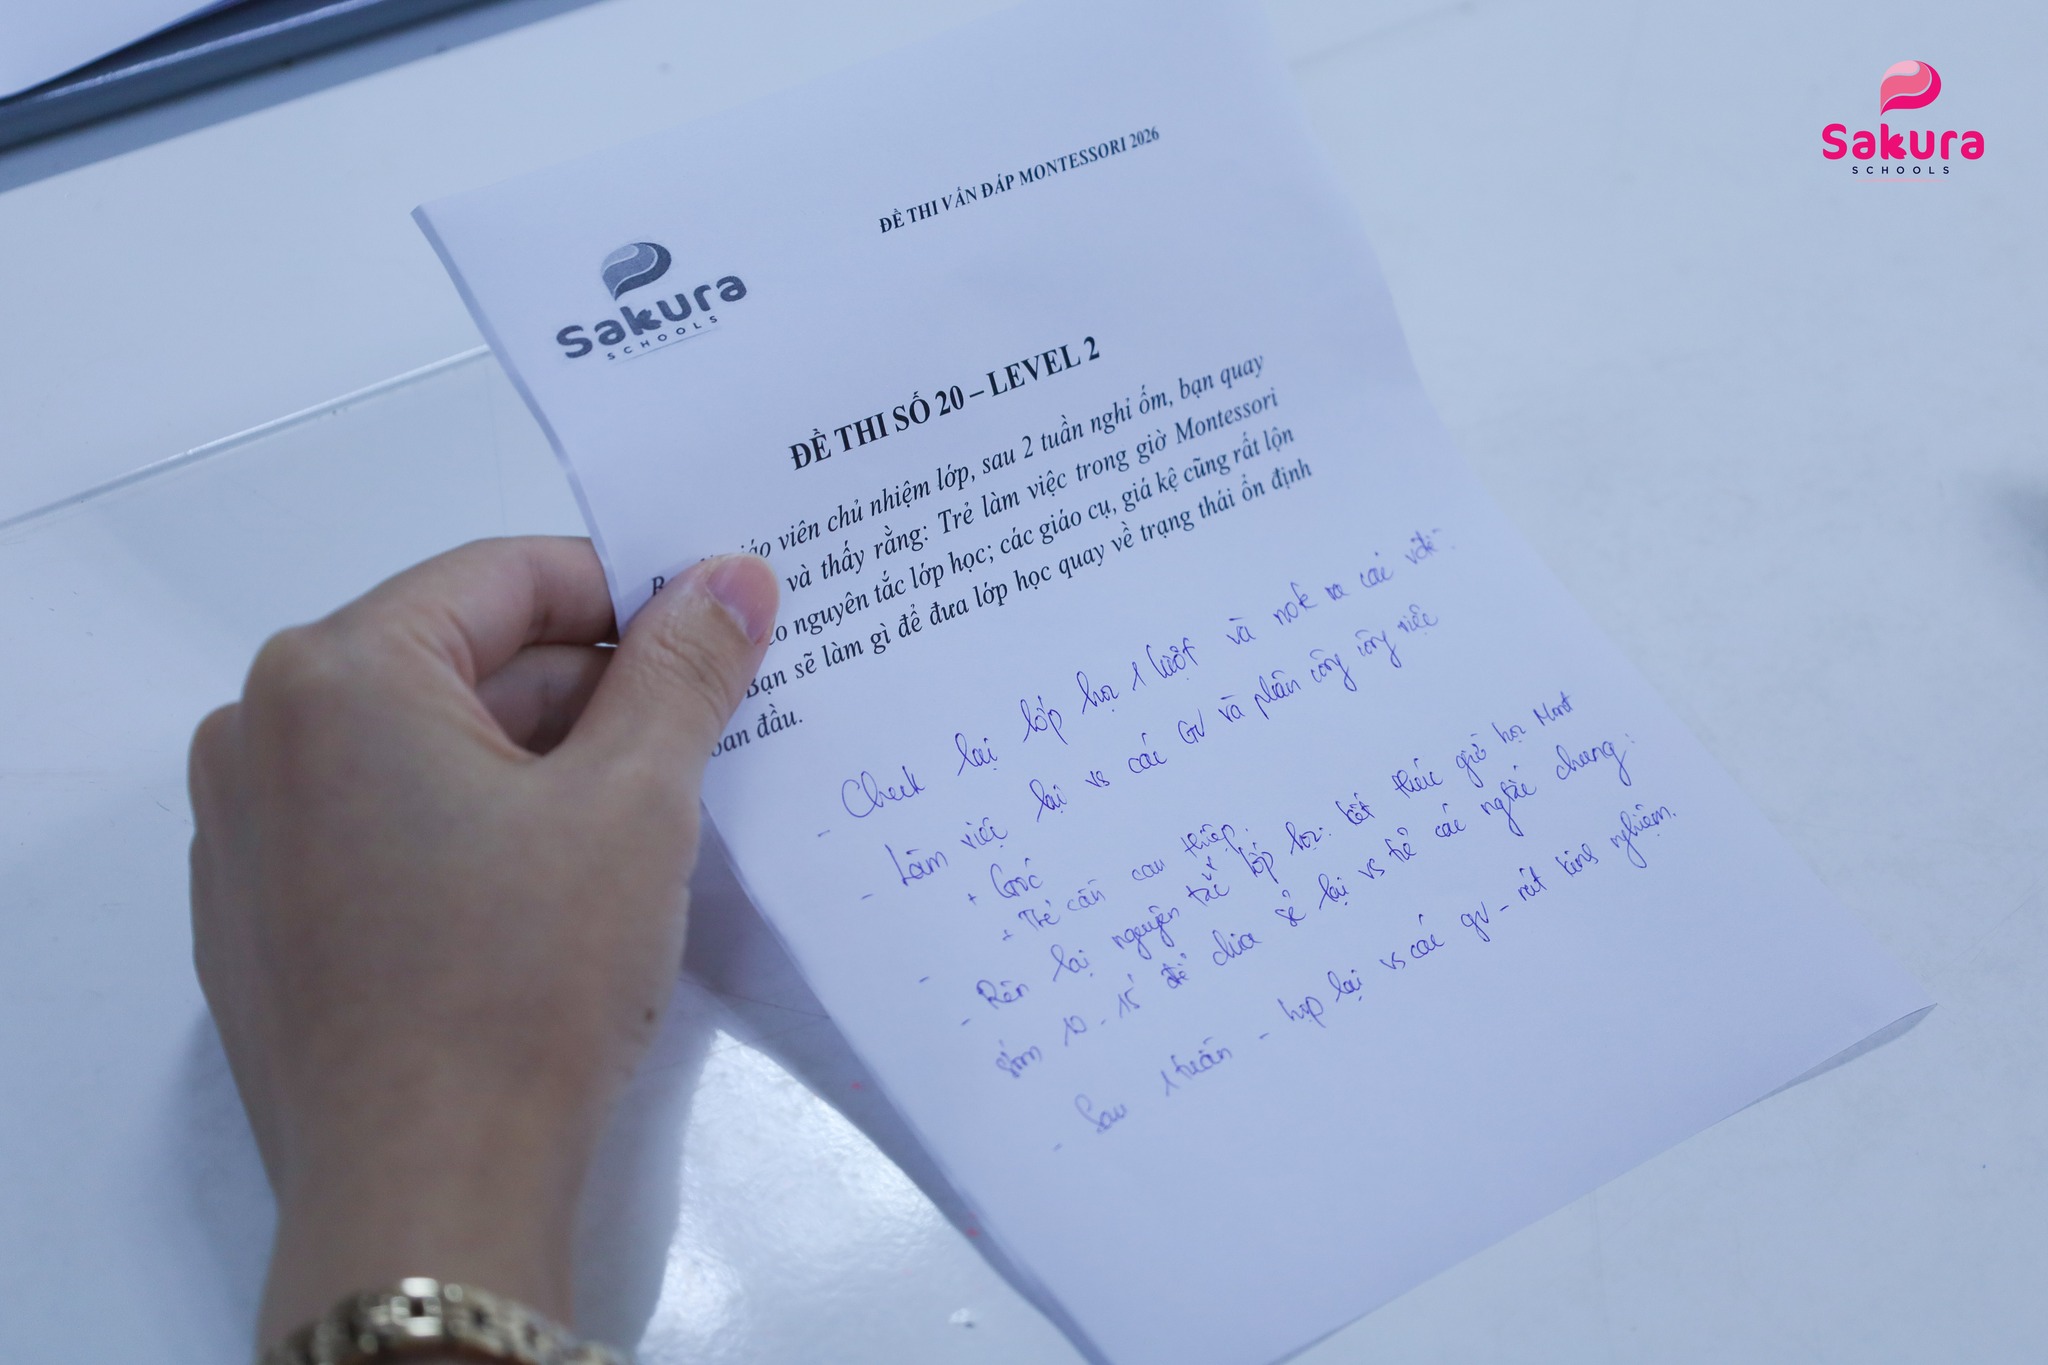 Sakura
SCHOOLS
ĐỀ THI VẤN ĐÁP MONTESSORI 2026
Sakura
SCHOOLS
ĐỀ THI SỐ 20 – LEVEL 2
giáo viên chủ nhiệm lớp, sau 2 tuần nghỉ ốm, bạn quay
và thấy rằng: Trẻ làm việc trong giờ Montessori
nguyên tắc lớp học; các giáo cụ, giá kệ cũng rất lộn
Bạn sẽ làm gì để đưa lớp học quay về trạng thái ổn định
ban đầu.
- Check lại lớp học 1 lượt và note ra các vđề
- Làm việc lại vs các GV và phân công công việc
+ Góc
+ Trẻ cần can thiệp.
- Rèn lại nguyên tắc lớp học: kết thúc giờ học Mont
sớm 10 - 15' để chia sẻ lại vs trẻ các ngtắc chung.
- Sau 1 tuần - họp lại vs các gv - rút kinh nghiệm.